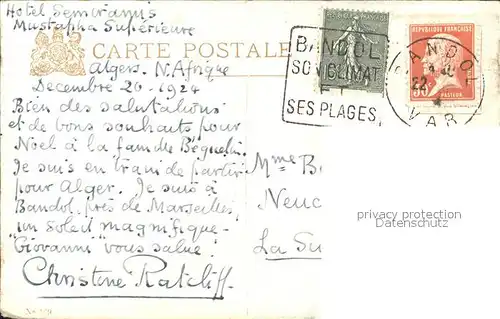 Hotel Semiramis
Mustapha Supérieure
CARTE POSTALE
Algers. N. Afrique
Decembre 20 - 1924
Bien des salutations
et de bons souhaits pour
Noël à la famille Béguelin.
Je suis en train de partir
pour Alger. Je suis à
Bandol, près de Marseilles,
un soleil magnifique -
"Giovanni" vous salue!
Christine Ratcliff.
BANDOL
SON CLIMAT
ET
SES PLAGES
REPUBLIQUE FRANÇAISE
PASTEUR
BANDOL
22
VAR
Mme B
Neuc
La Su
privacy protection
Datenschutz